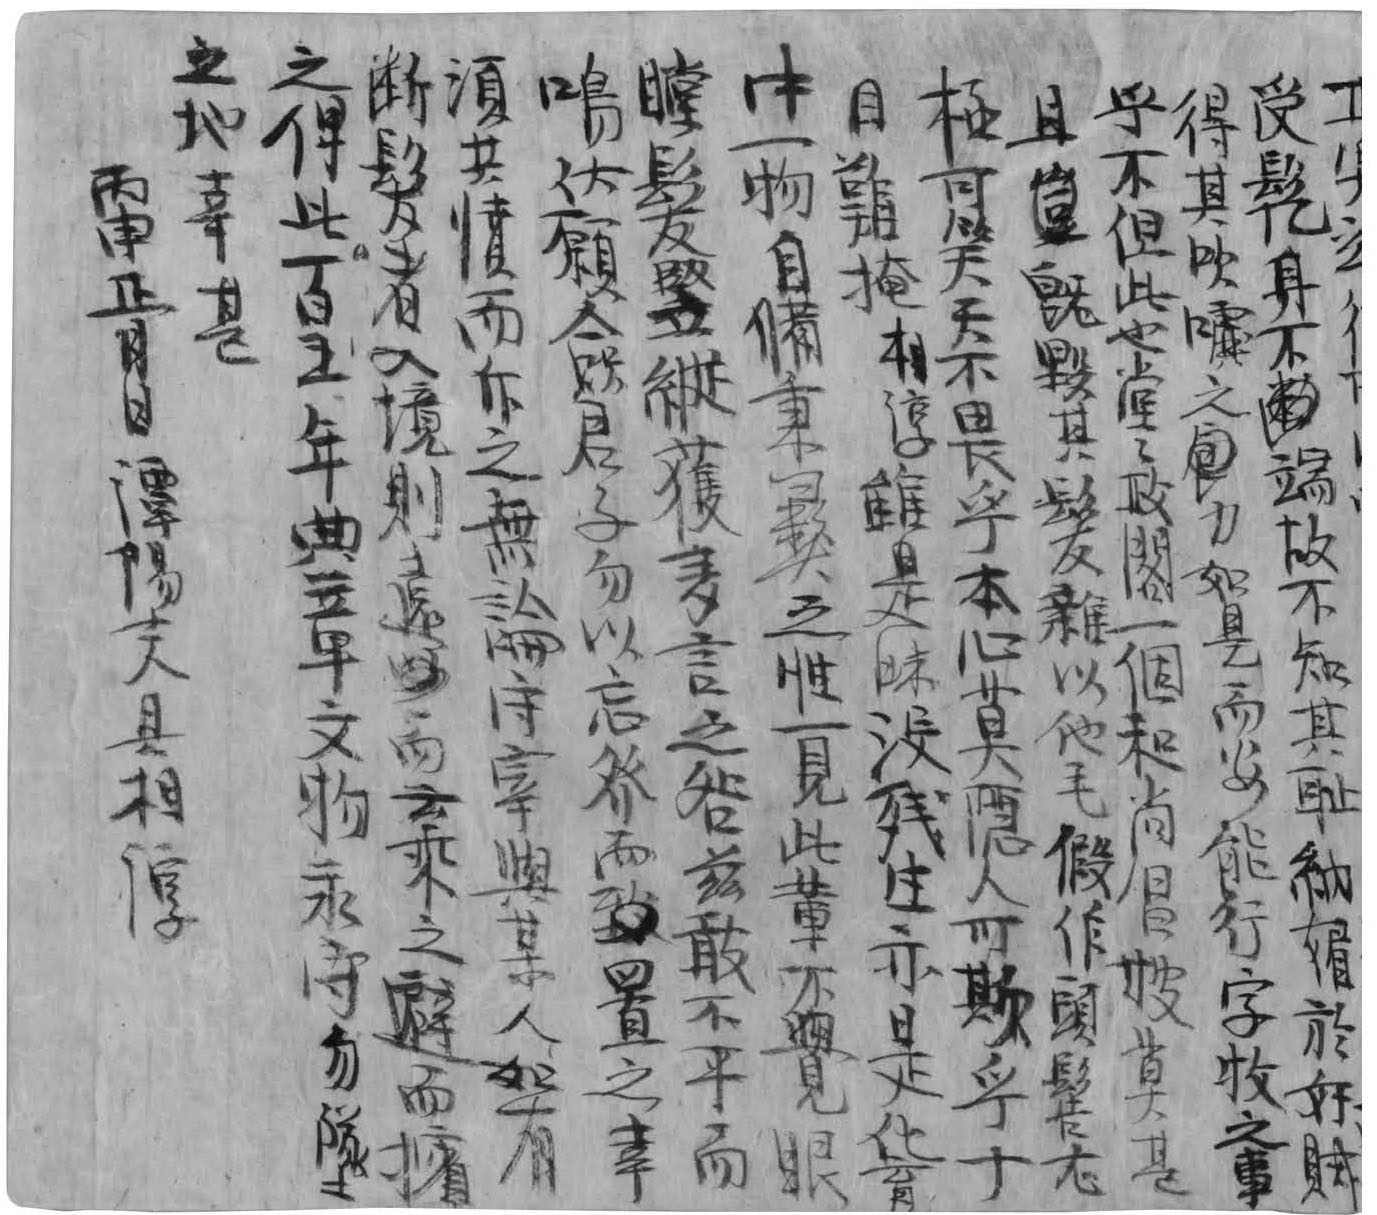 受髡身不適端故不知其恥納媚於奸賊
得其吹噓之力如是而安能行字牧之事
乎不但此也堂堂政閣一個和尚冒嫂莫甚
且豈旣毀其髮雜以他毛假作頭髻尤
極可笑天不畏乎本心莫隱人可欺乎十
目難掩相淳雖是昧沒殘生亦是化育
中一物自備秉彛之性一見此輩不覺眼
瞠髮竪縱獲妄言之咎玆敢不平而
鳴伏願僉君子勿以忘發而置之幸
須共憤而斥之無論守宰與某人如有
断髮者入境則遠而棄之避而擯
之俾此百王年典章文物永守勿墜
之地幸甚
丙申正月日潭陽士人具相淳